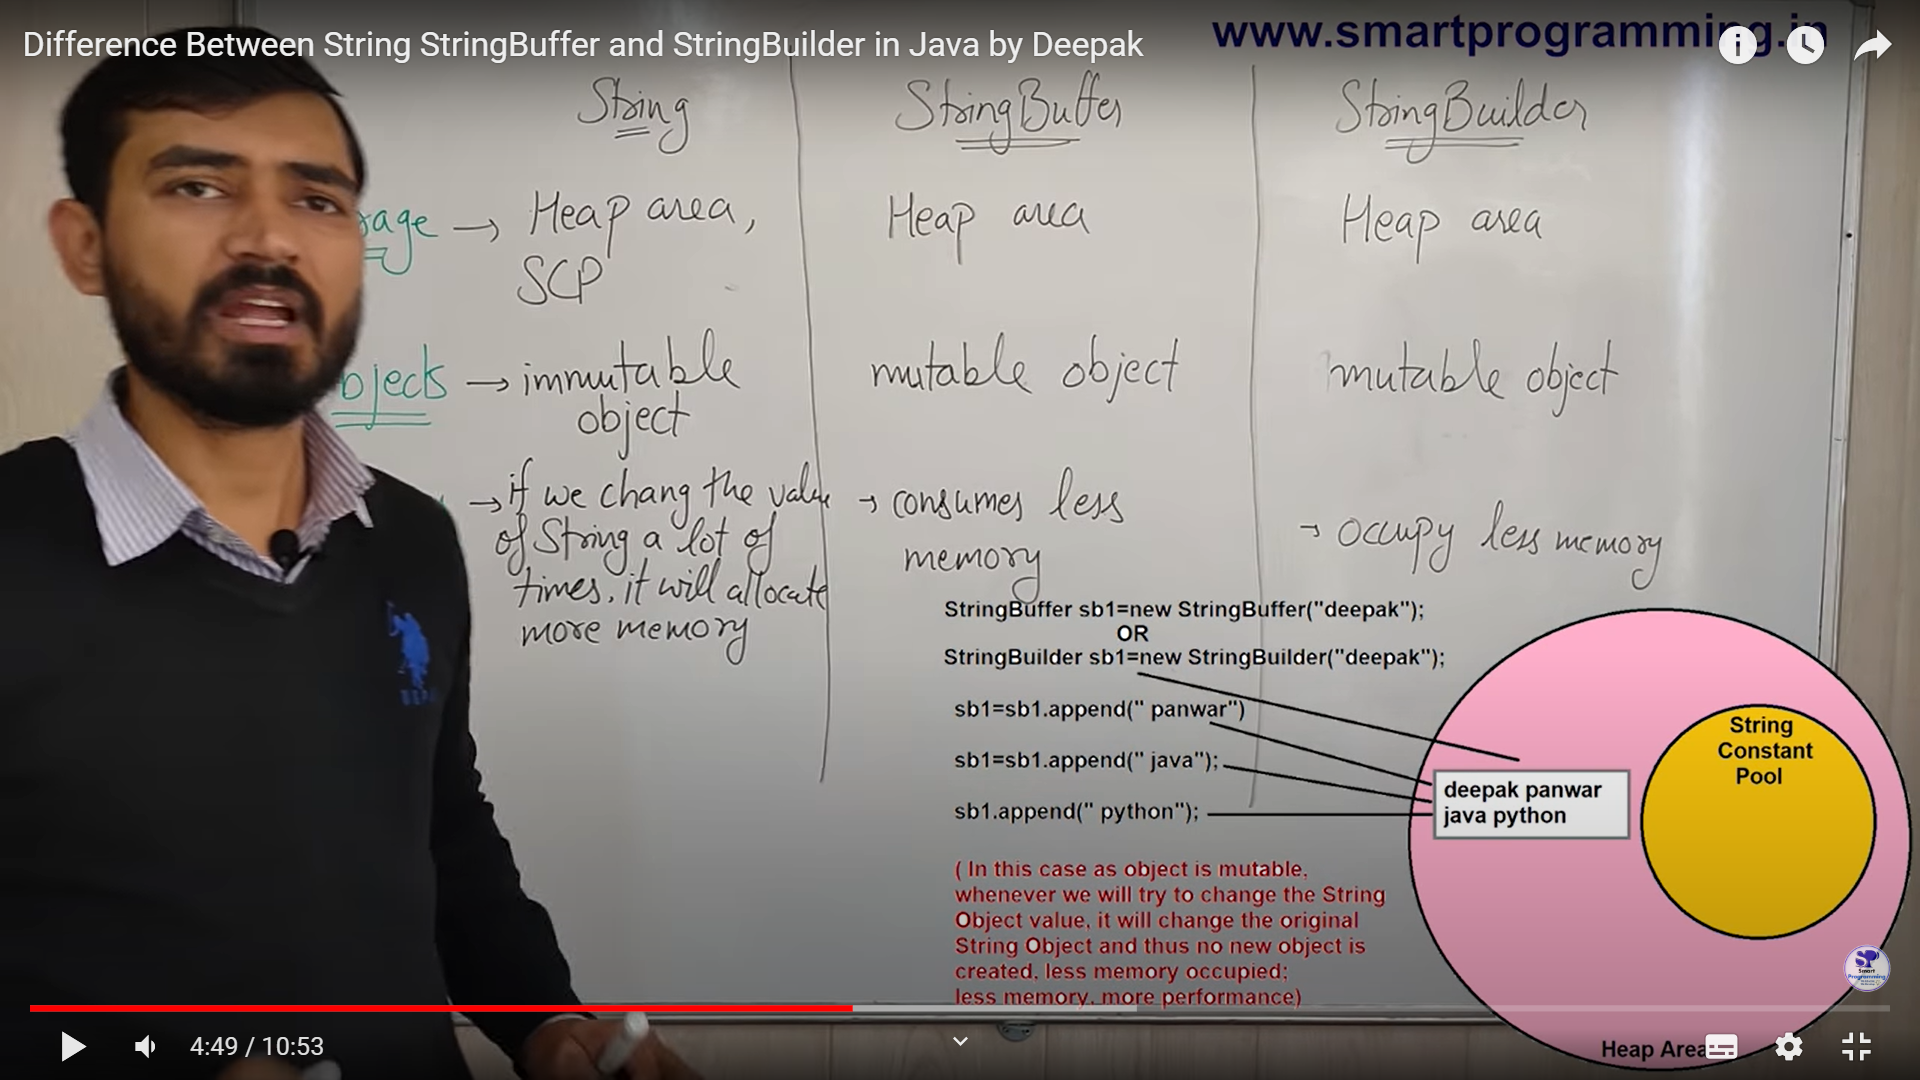 Difference Between String StringBuffer and StringBuilder in Java by Deepak
www.smartprogramming.in
String
StringBuffer
StringBuilder
rage → Heap area,
SCP
Heap area
Heap area
bjects → immutable
object
mutable object
mutable object
→ if we chang the value
of String a lot of
times, it will allocate
more memory
→ consumes less
memory
→ occupy less memory
StringBuffer sb1=new StringBuffer("deepak");
OR
StringBuilder sb1=new StringBuilder("deepak");
sb1=sb1.append(" panwar")
sb1=sb1.append(" java");
sb1.append(" python");
( In this case as object is mutable,
whenever we will try to change the String
Object value, it will change the original
String Object and thus no new object is
created, less memory occupied;
less memory, more performance)
String
Constant
Pool
deepak panwar
java python
Heap Area
Smart
Programming
4:49 / 10:53